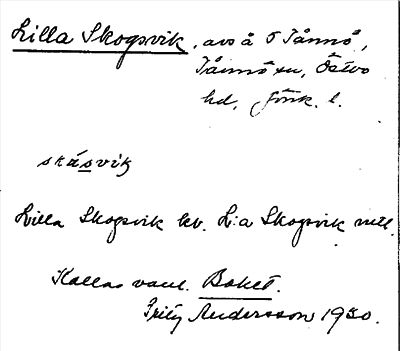 Lilla Skogsvik, avs å Ö Tånnö,
Tånnö sn, Östbo
hd, Jönk. l.
skåsvik
Lilla Skogsvik kv. L:a Skogsvik
Kallas vanl. Boket.
Fritz Andersson 1930.